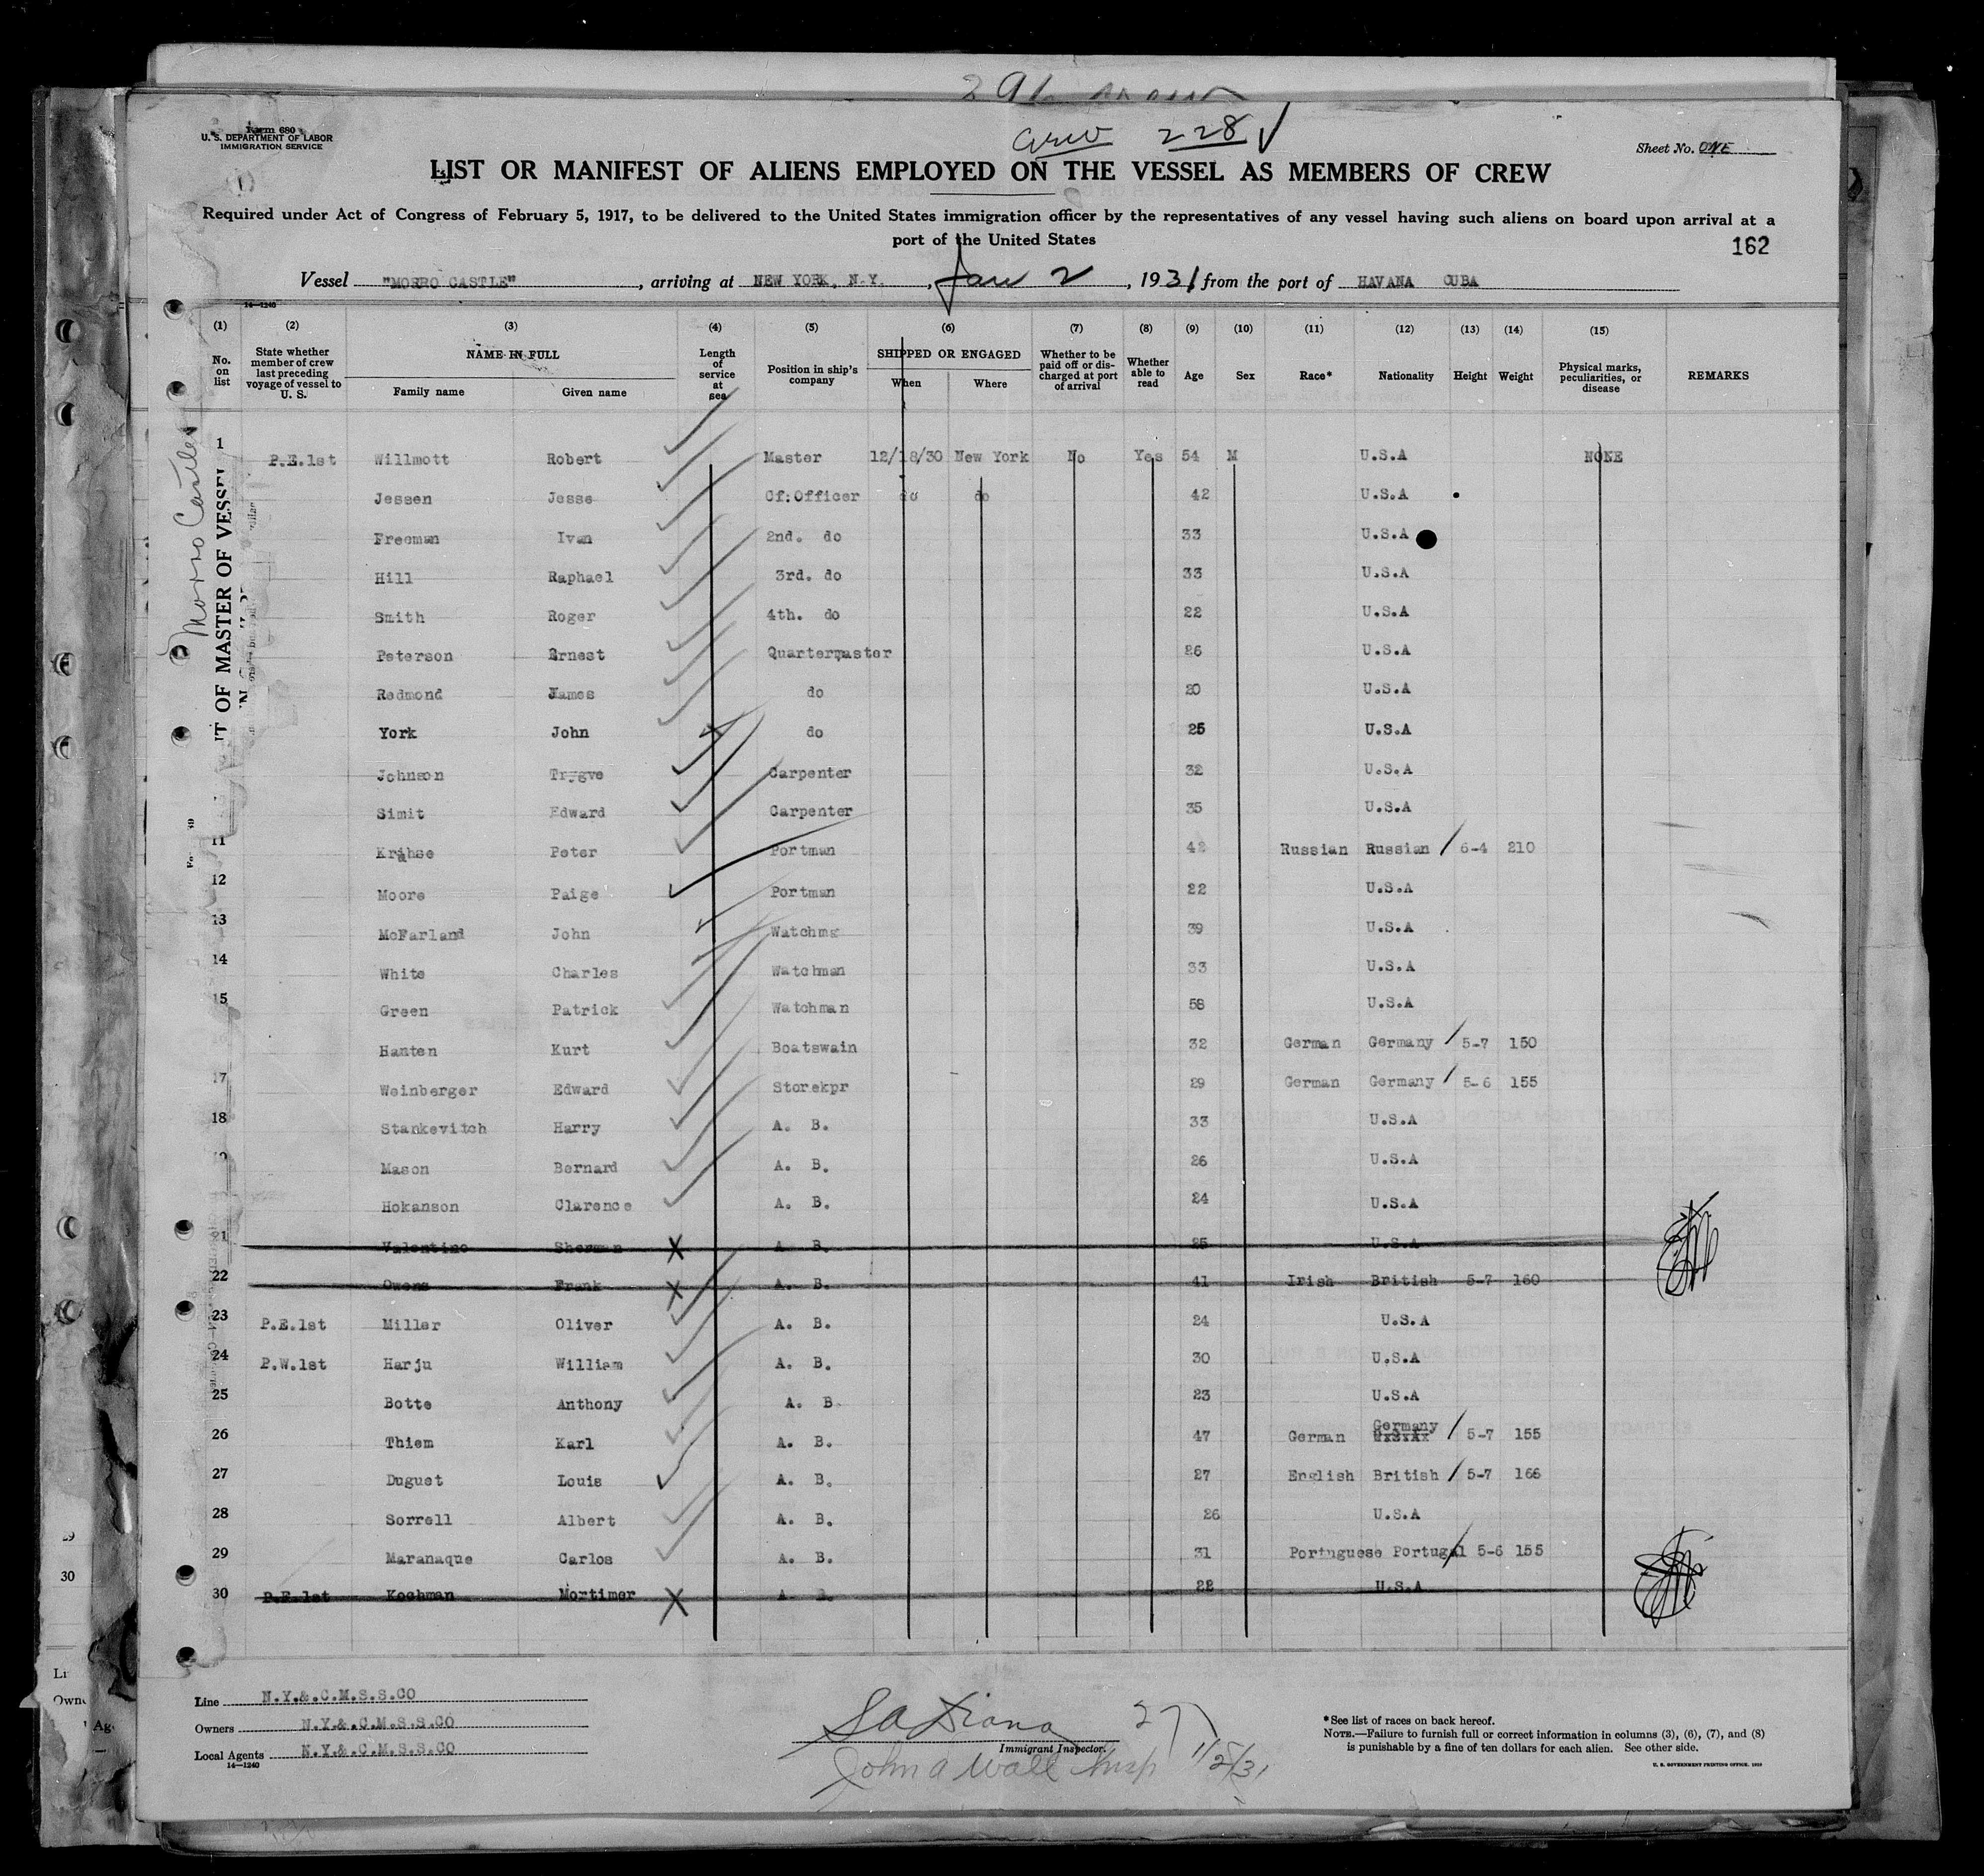 Crew 228
Form 680
U. S. DEPARTMENT OF LABOR
IMMIGRATION SERVICE
Sheet No. ONE
LIST OR MANIFEST OF ALIENS EMPLOYED ON THE VESSEL AS MEMBERS OF CREW
Required under Act of Congress of February 5, 1917, to be delivered to the United States immigration officer by the representatives of any vessel having such aliens on board upon arrival at a
port of the United States
162
Vessel "MORRO CASTLE", arriving at NEW YORK, N.Y., Jan 2, 1931 from the port of HAVANA CUBA
14-1240
(1) (2) (3) (4) (5) (6) (7) (8) (9) (10) (11) (12) (13) (14) (15)
No. on list
State whether member of crew last preceding voyage of vessel to U. S.
NAME IN FULL
Family name Given name
Length of service at sea
Position in ship's company
SHIPPED OR ENGAGED
When Where
Whether to be paid off or discharged at port of arrival
Whether able to read
Age Sex Race* Nationality Height Weight
Physical marks, peculiarities, or disease
REMARKS
Morro Castle
T OF MASTER OF VESSEL
1 P.E.1st Willmott Robert Master 12/18/30 New York No Yes 54 M U.S.A NONE
Jessen Jesse Cf:Officer do do 42 U.S.A
Freeman Ivan 2nd. do 33 U.S.A
Hill Raphael 3rd. do 33 U.S.A
Smith Roger 4th. do 22 U.S.A
Peterson Ernest Quartermaster 26 U.S.A
Redmond James do 20 U.S.A
York John do 25 U.S.A
Johnson Trygve Carpenter 32 U.S.A
Simit Edward Carpenter 35 U.S.A
11 Krahse Peter Portman 42 Russian Russian 6-4 210
12 Moore Paige Portman 22 U.S.A
13 McFarland John Watchmg 39 U.S.A
14 White Charles Watchman 33 U.S.A
15 Green Patrick Watchman 58 U.S.A
Hanten Kurt Boatswain 32 German Germany 5-7 150
17 Weinberger Edward Storekpr 29 German Germany 5-6 155
18 Stankevitch Harry A. B. 33 U.S.A
Mason Bernard A. B. 26 U.S.A
Hokanson Clarence A. B. 24 U.S.A
21 Valentino Sherman A B. 25 U.S.A
22 Owens Frank A. B. 41 Irish British 5-7 160
23 P.E.1st Miller Oliver A. B. 24 U.S.A
24 P.W.1st Harju William A. B. 30 U.S.A
25 Botte Anthony A. B. 23 U.S.A
26 Thiem Karl A. B. 47 German Germany 5-7 155
27 Duguet Louis A. B. 27 English British 5-7 166
28 Sorrell Albert A. B. 26 U.S.A
29 Maranaque Carlos A. B. 31 Portuguese Portugal 5-6 155
30 P.E.1st Kochman Mortimer A B. 22 U.S.A
29
30
Line N.Y.&.C.M.S.S.CO
Owners N.Y.&.C.M.S.S.CO
Local Agents N.Y.&.C.M.S.S.CO
14-1240
27
Immigrant Inspector.
John A Wall Insp 1/2/31
*See list of races on back hereof.
NOTE.—Failure to furnish full or correct information in columns (3), (6), (7), and (8)
is punishable by a fine of ten dollars for each alien. See other side.
U. S. GOVERNMENT PRINTING OFFICE: 1929